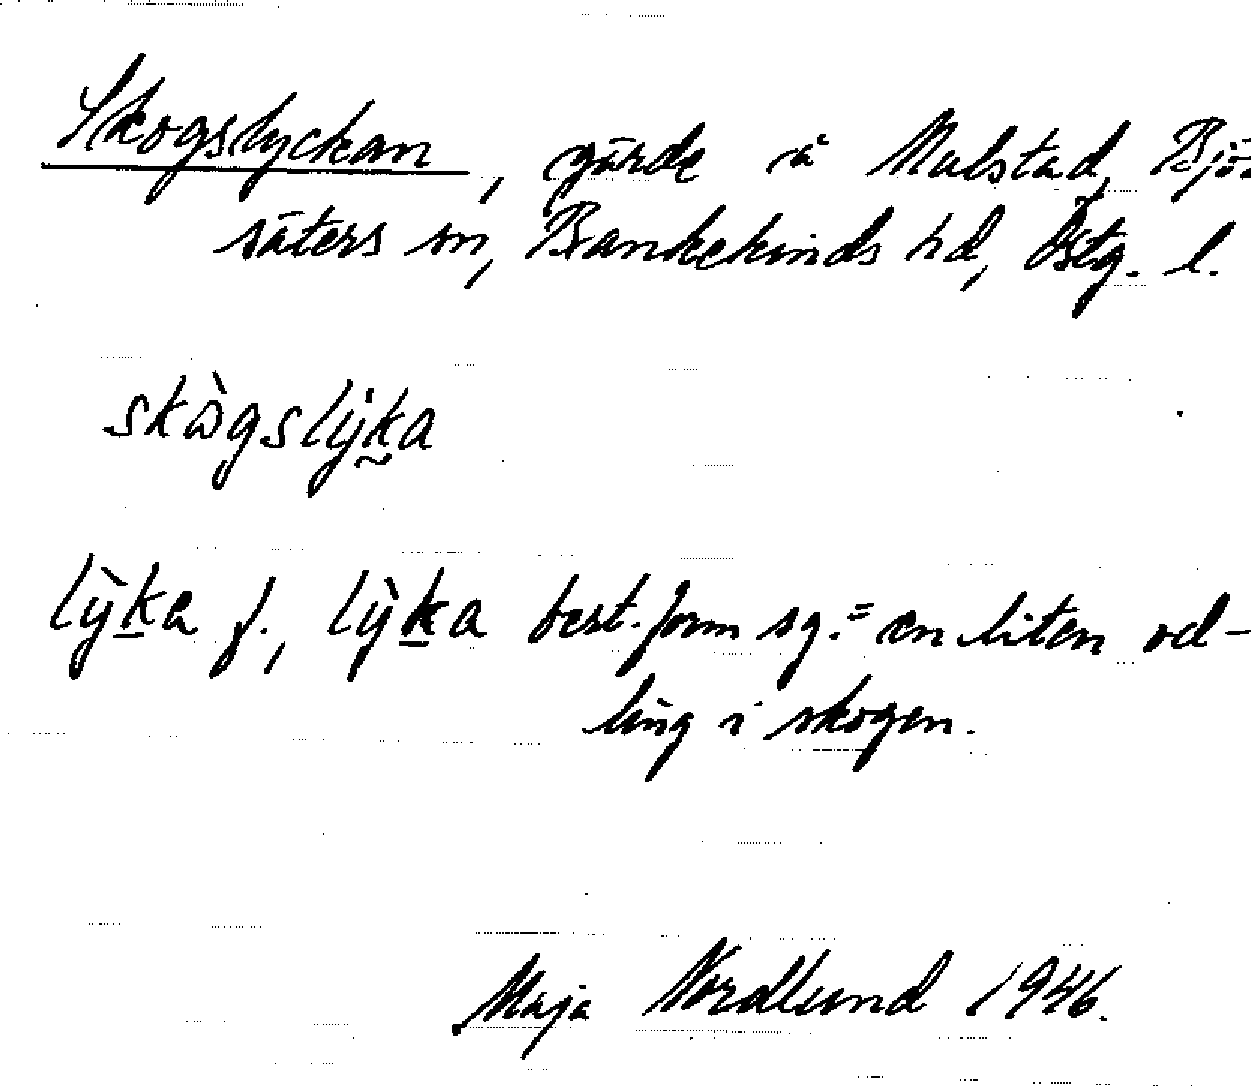 Skogslyckan, gärde å Malstad, Bjö
säters sn, Bankekinds hd, Östg. l.
skògslyka
lỳka f., lỳka best. form sg. = en liten od-
ling i skogen.
Maja Nordlund 1946.